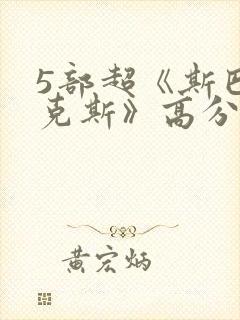 5部超《斯巴
克斯》高分
黄宏炳